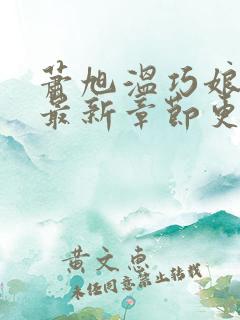 萧旭温巧娘
最新章节更
黄文惠
未经同意禁止转载